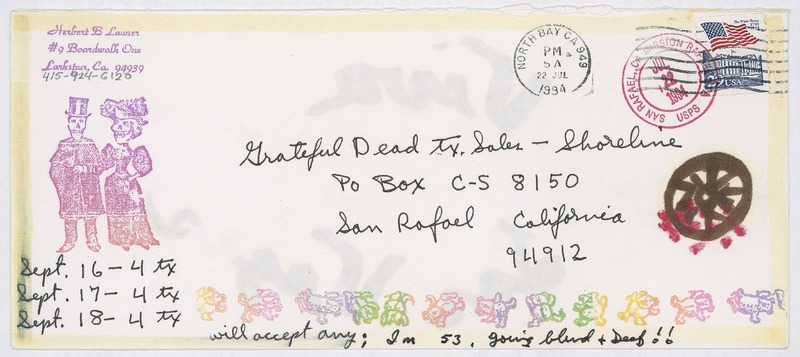 Herbert B Launer
#9 Boardwalk One
Larkspur, Ca. 94939
415-924-6120
NORTH BAY CA 949
PM
5 A
22 JUL
1994
SAN RAFAEL, CA MISSION RAFAEL
JUL
22
1994
USPS
The White House
29
USA
Grateful Dead tx. Sales - Shoreline
Po Box C-S 8150
San Rafael California
94912
Sept. 16 - 4 tx
Sept. 17 - 4 tx
Sept. 18 - 4 tx
will accept any; Im 53, going blind + Deaf!!